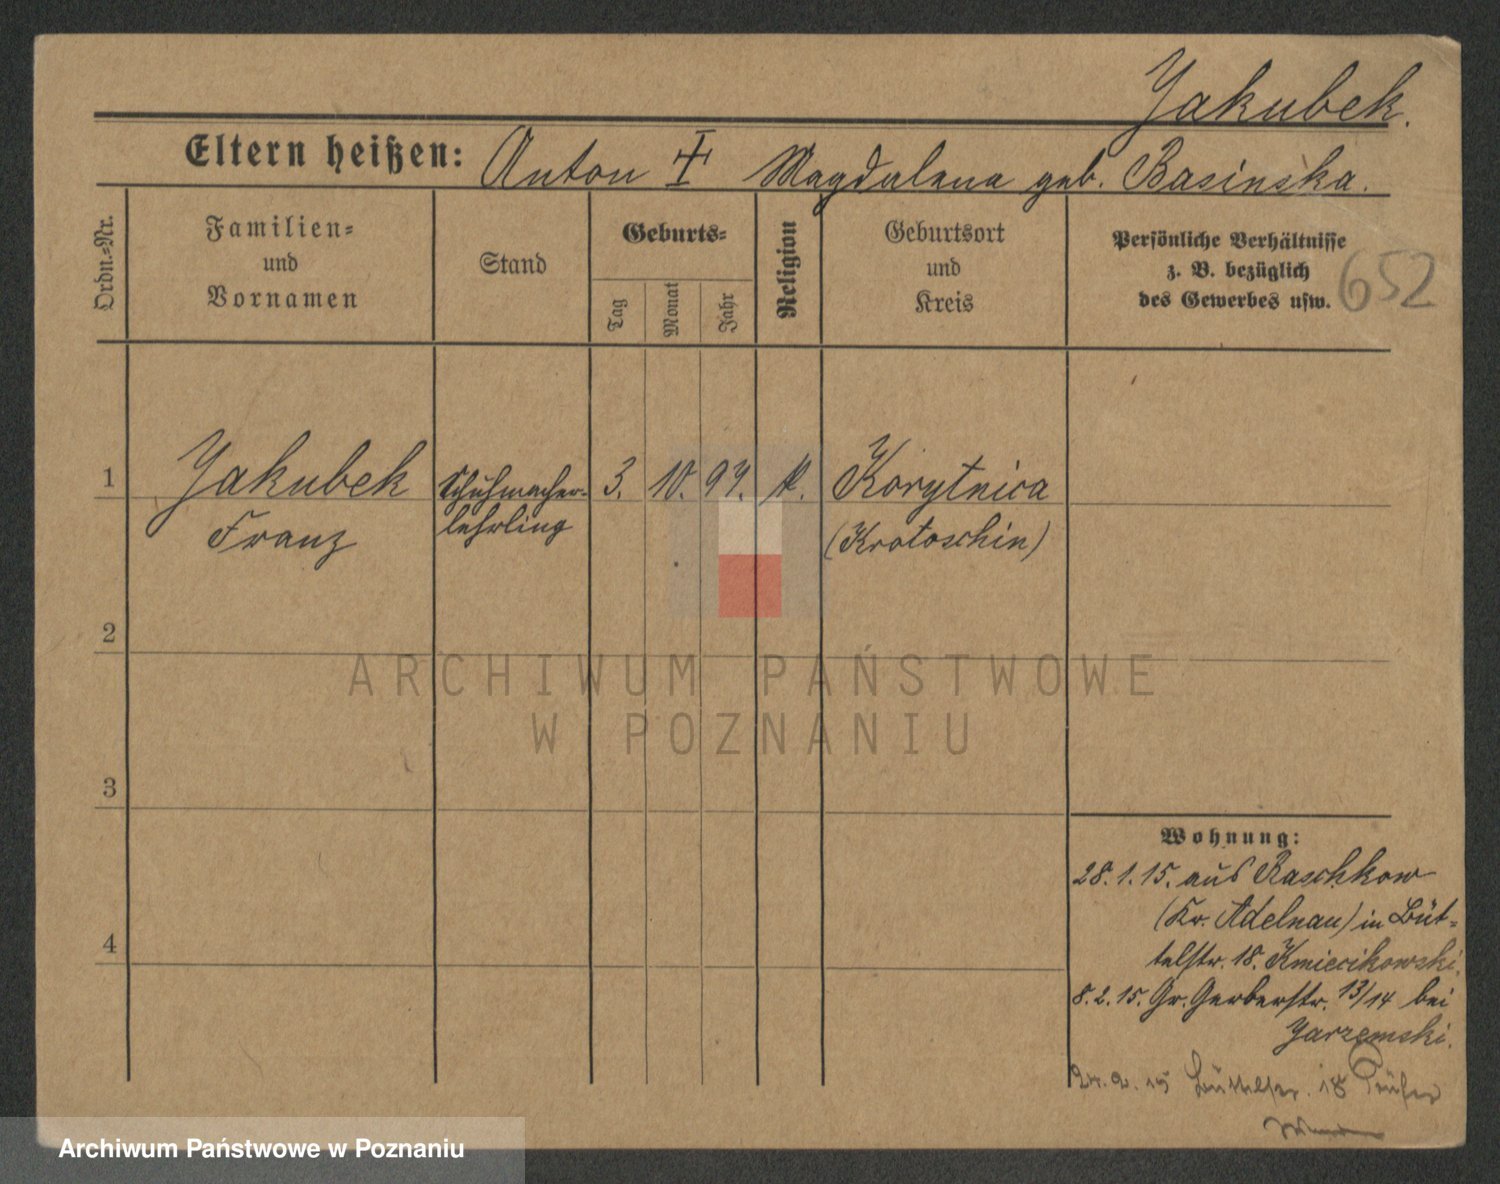 Jakubek.
Eltern heißen: Anton † Magdalena geb. Basinska.
Ordn.-Nr.
Familien-
und
Vornamen
Stand
Geburts-
Tag
Monat
Jahr
Religion
Geburtsort
und
Kreis
Persönliche Verhältnisse
z. B. bezüglich
des Gewerbes usw.
652
1 Jakubek Schuhmacher- 3. 10. 97. k. Korytnica
Franz lehrling (Krotoschin)
2
3
4
Wohnung:
28. 1. 15. aus Raschkow
(Kr. Adelnau) in Büt-
telstr. 18. Kmiecikowski.
8. 2. 15. Gr. Gerberstr. 13/14 bei
Jarzemski.
24. 2. 15 Büttelstr. 18
ARCHIWUM PAŃSTWOWE
W POZNANIU
Archiwum Państwowe w Poznaniu